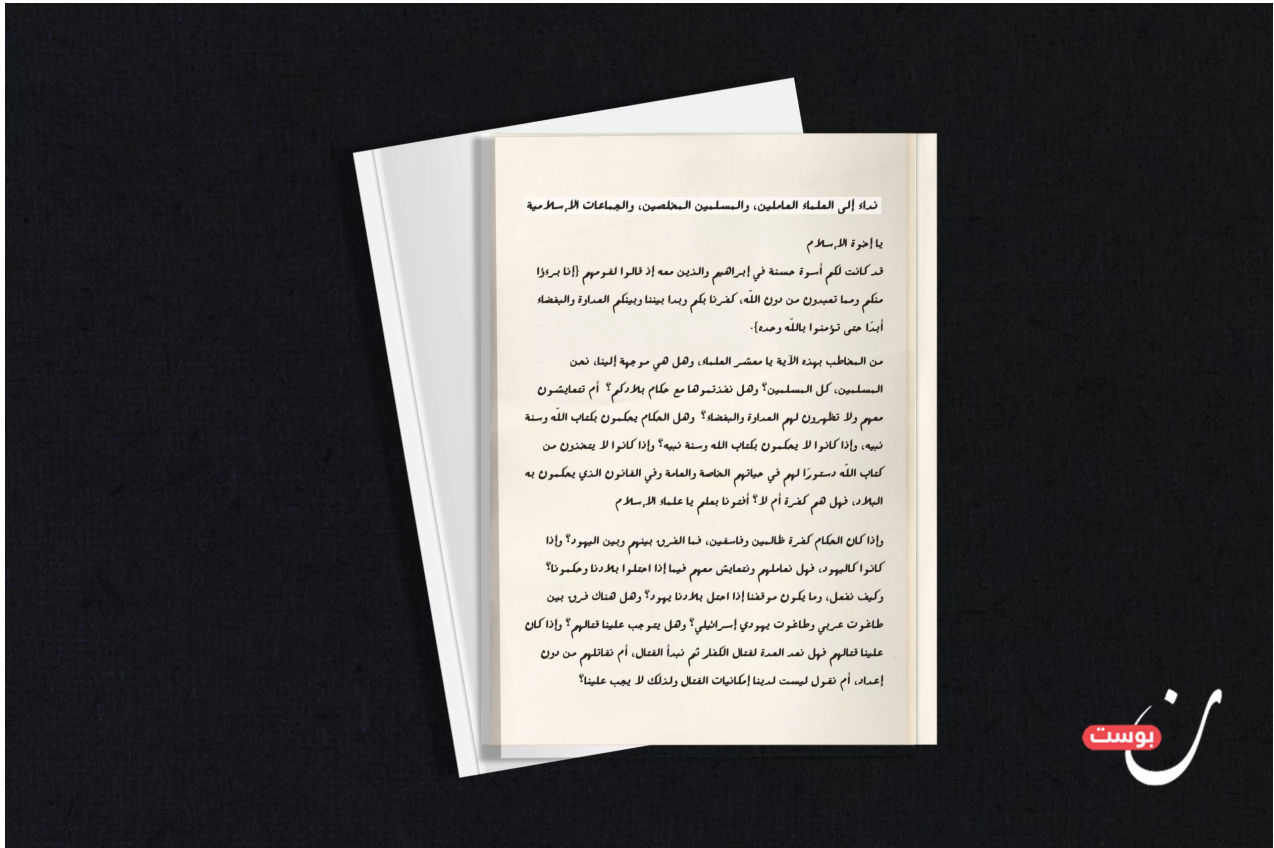 نداء إلى العلماء العاملين، والمسلمين المخلصين، والجماعات الإسلامية
يا إخوة الإسلام
قد كانت لكم أسوة حسنة في إبراهيم والذين معه إذ قالوا لقومهم {إنا برءؤا
منكم ومما تعبدون من دون اللّه، كفرنا بكم وبدا بيننا وبينكم العداوة والبغضاء
أبدًا حتى تؤمنوا باللّه وحده}.
من المخاطب بهذه الآية يا معشر العلماء، وهل هي موجهة إلينا، نحن
المسلمين، كل المسلمين؟ وهل نفذتموها مع حكام بلادكم؟ أم تتعايشون
معهم ولا تظهرون لهم العداوة والبغضاء؟ وهل الحكام يحكمون بكتاب اللّه وسنة
نبيه، وإذا كانوا لا يحكمون بكتاب الله وسنة نبيه؟ وإذا كانوا لا يتخذون من
كتاب اللّه دستورًا لهم في حياتهم الخاصة والعامة وفي القانون الذي يحكمون به
البلاد، فهل هم كفرة أم لا؟ أفتونا بعلم يا علماء الإسلام
وإذا كان الحكام كفرة ظالمين وفاسقين، فما الفرق بينهم وبين اليهود؟ وإذا
كانوا كاليهود، فهل نعاملهم ونتعايش معهم فيما إذا احتلوا بلادنا وحكمونا؟
وكيف نفعل، وما يكون موقفنا إذا احتل بلادنا يهود؟ وهل هناك فرق بين
طاغوت عربي وطاغوت يهودي إسرائيلي؟ وهل يتوجب علينا قتالهم؟ وإذا كان
علينا قتالهم فهل نعد العدة لقتال الكفار ثم نبدأ القتال، أم نقاتلهم من دون
إعداد، أم نقول ليست لدينا إمكانيات القتال ولذلك لا يجب علينا؟
ن بوست